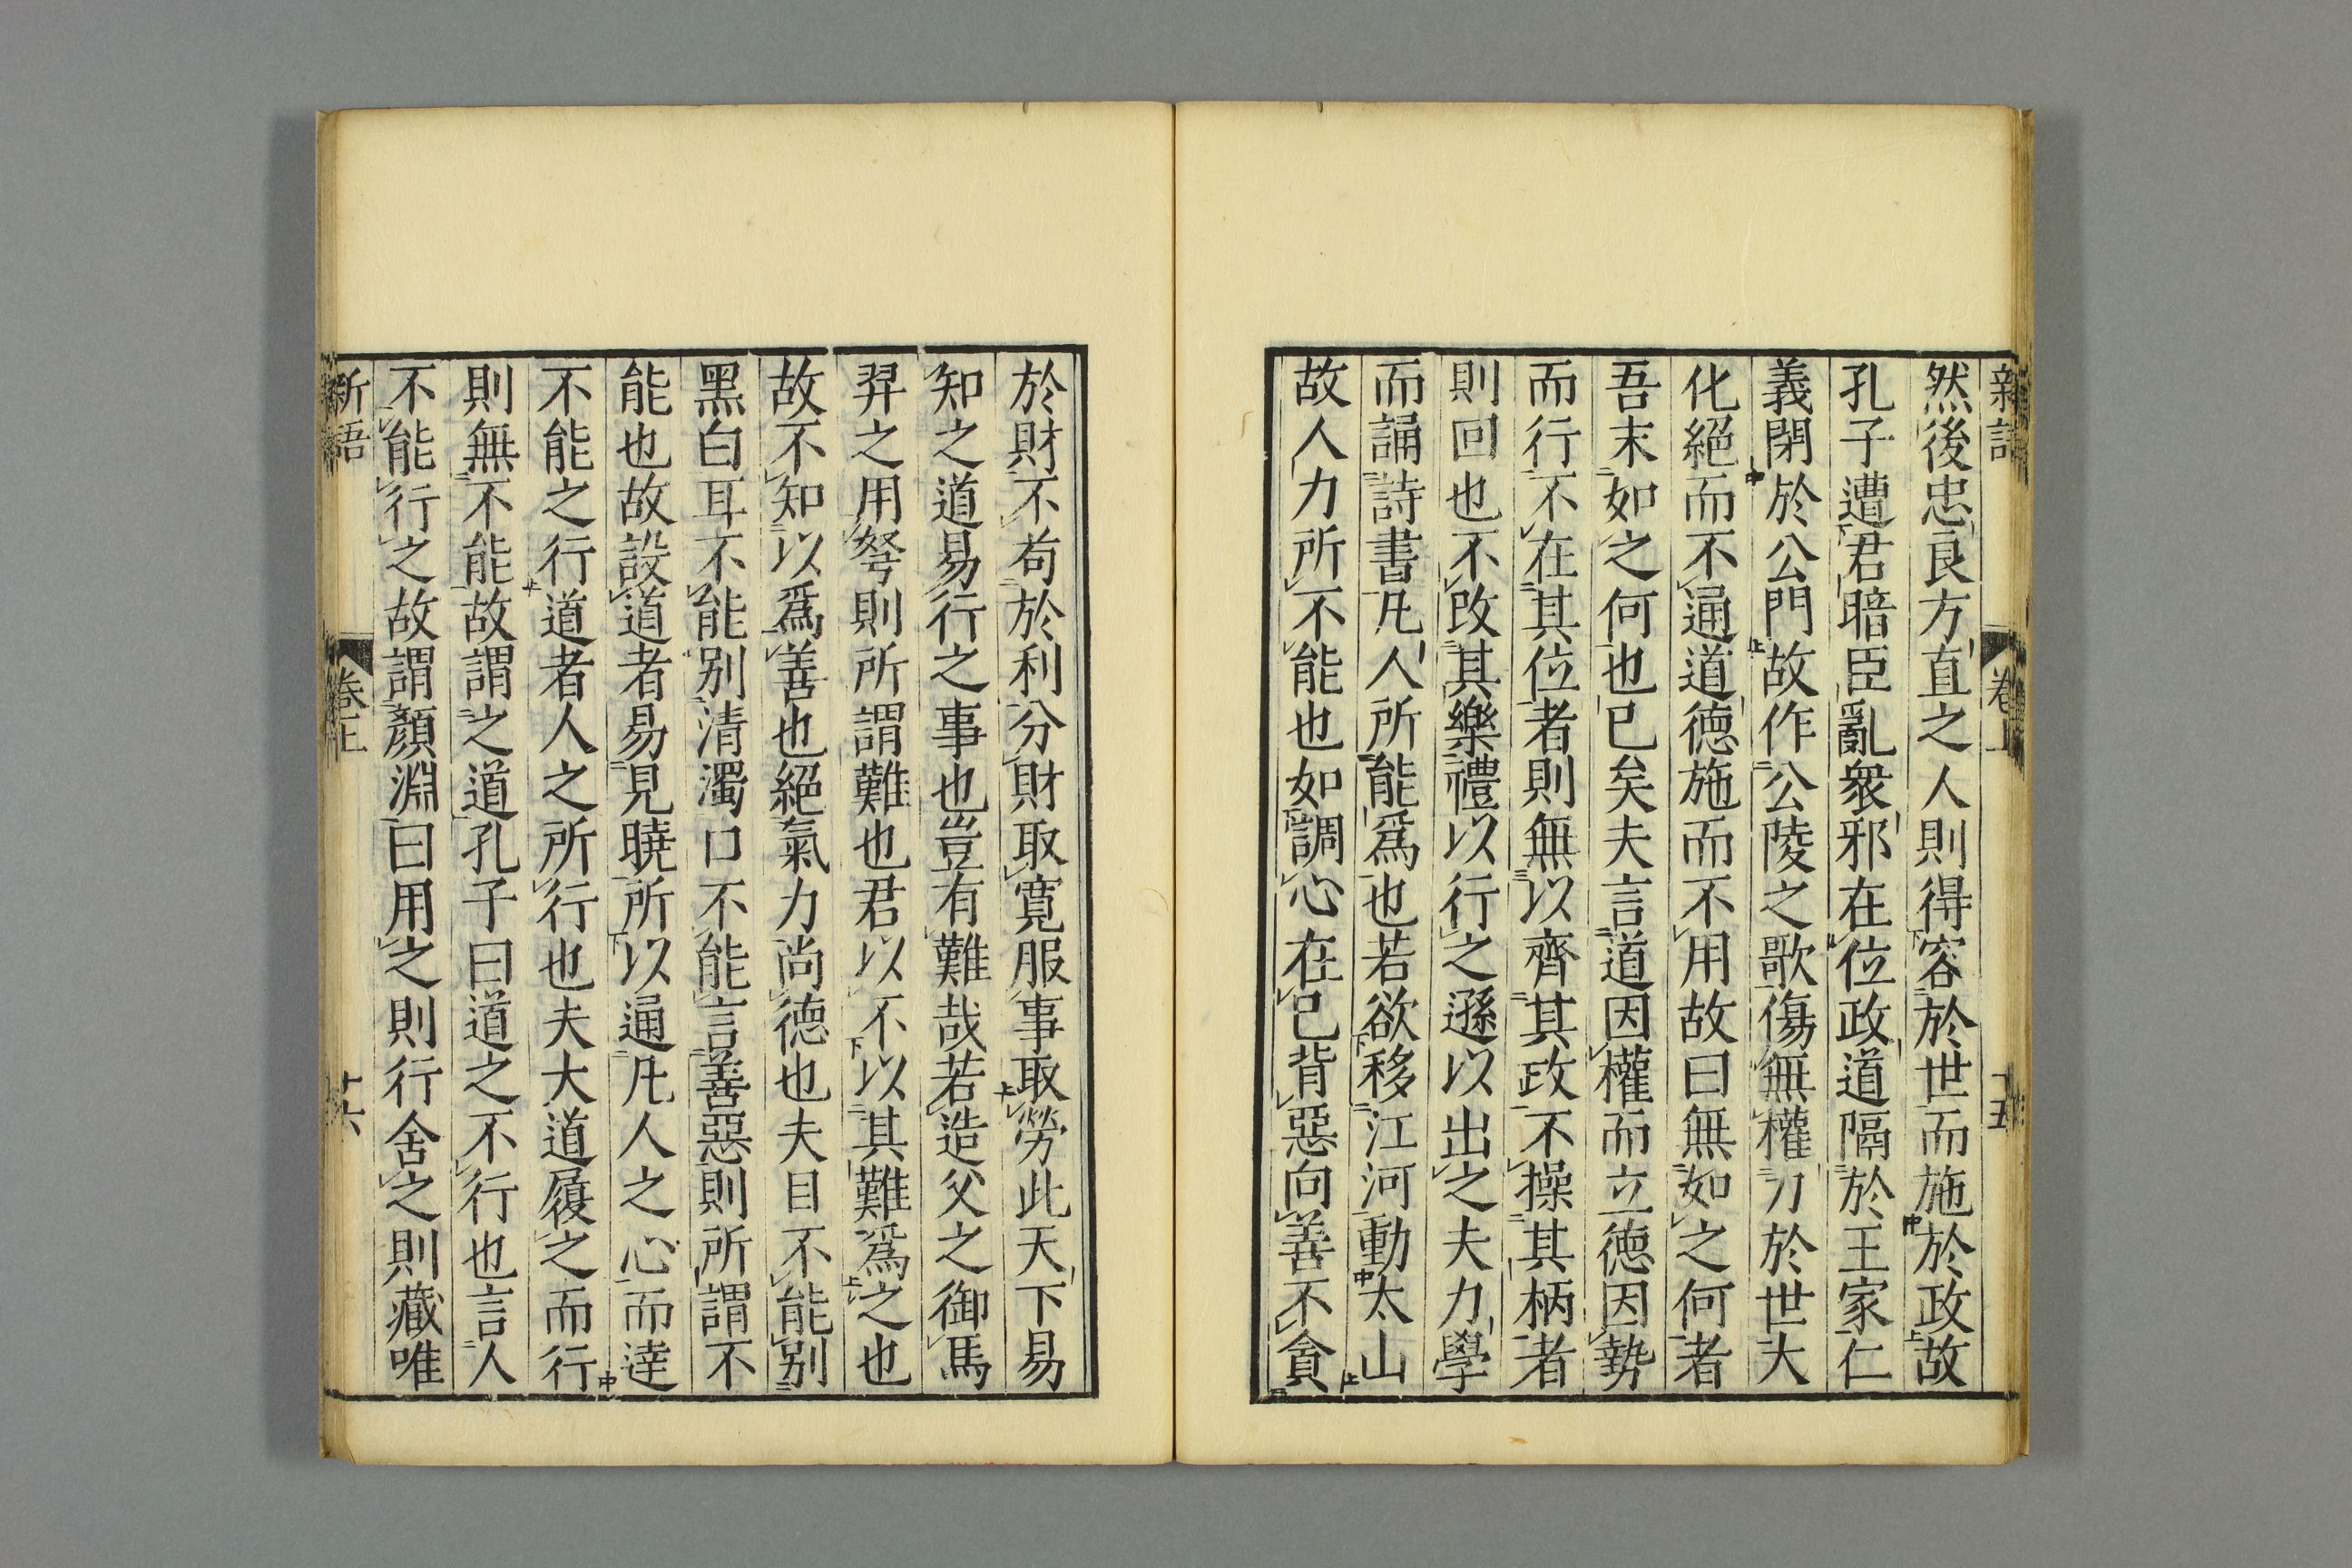 新語 卷上 十五
然後忠良方直之人則得容於世而施於政故
孔子遭君暗臣亂衆邪在位政道隔於王家仁
義閉於公門故作公陵之歌傷無權力於世大
化絕而不通道德施而不用故曰無如之何者
吾末如之何也已矣夫言道因權而立德因勢
而行不在其位者則無以齊其政不操其柄者
則回也不改其樂禮以行之遜以出之夫力學
而誦詩書凡人所能爲也若欲移江河動太山
故人力所不能也如調心在己背惡向善不貪
於財不苟於利分財取寬服事取勞此天下易
知之道易行之事也豈有難哉若造父之御馬
羿之用弩則所謂難也君以不以其難爲之也
故不知以爲善也絕氣力尚德也夫目不能別
黑白耳不能別清濁口不能言善惡則所謂不
能也故設道者易見曉所以通凡人之心而達
不能之行道者人之所行也夫大道履之而行
則無不能故謂之道孔子曰道之不行也言人
不能行之故謂顏淵曰用之則行舍之則藏唯
新語 卷上 十六